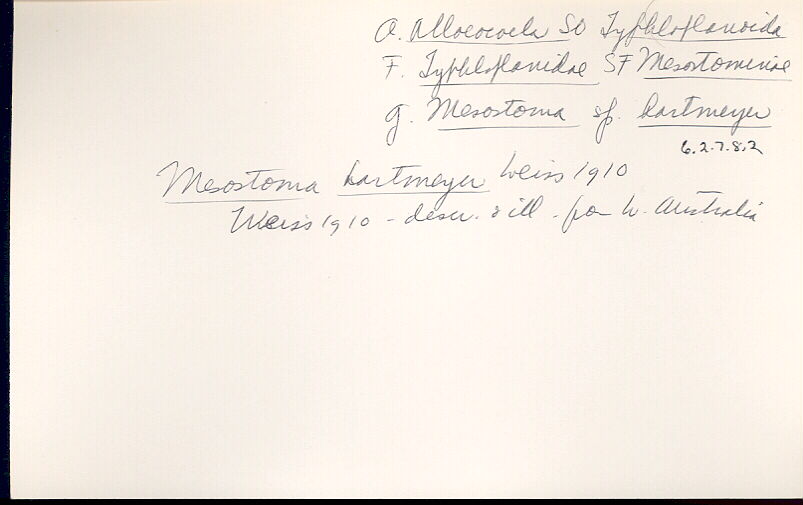 O. Alloeocoela SO Typhloplanoida
F. Typhloplanidae SF Mesostominae
g. Mesostoma sp. hartmeyer
6.2.7.8.2
Mesostoma hartmeyer Weiss 1910
Weiss 1910 - descr. & ill. from W. Australia